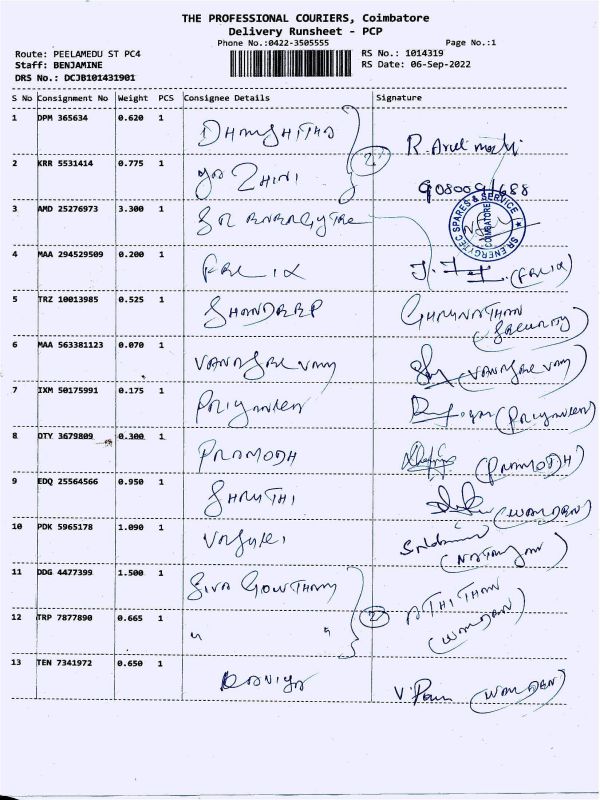 THE PROFESSIONAL COURIERS, Coimbatore
Delivery Runsheet - PCP
Phone No.:0422-3505555 Page No.:1
Route: PEELAMEDU ST PC4 RS No.: 1014319
Staff: BENJAMINE RS Date: 06-Sep-2022
DRS No.: DCJB101431901
S No Consignment No Weight PCS Consignee Details Signature
1 DPM 365634 0.620 1 DHARSHITHA
2 KRR 5531414 0.775 1 2
3 AMD 25276973 3.300 1
SR ENERGYTEC SPARES & SERVICE
COIMBATORE
4 MAA 294529509 0.200 1 FELIX (FELIX)
5 TRZ 10013985 0.525 1 SHANDEEP GURUNATHAN
(Security)
6 MAA 563381123 0.070 1
7 IXM 50175991 0.175 1
8 OTY 3679809 0.300 1 PRAMODH (PRAMODH)
9 EDQ 25564566 0.950 1 SHRUTHI (WARDEN)
10 PDK 5965178 1.090 1
11 DDG 4477399 1.500 1 SIVA GOWTHAM ATHITHAN
(WARDEN)
12 TRP 7877890 0.665 1 " " 2
13 TEN 7341972 0.650 1 (WARDEN)